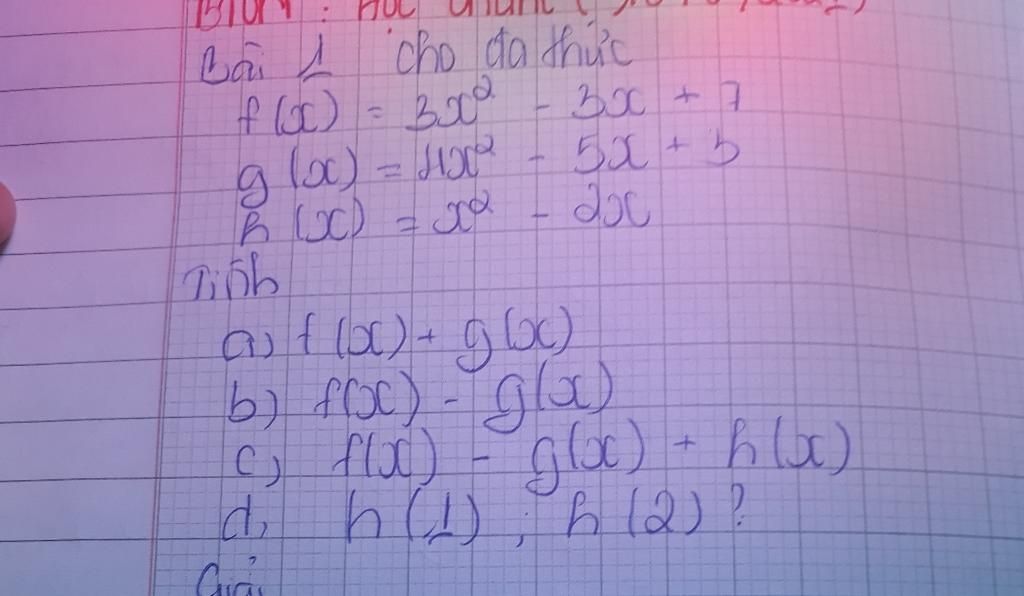 Bài 1 cho đa thức
f(x) = 3x² - 3x + 7
g(x) = 4x² - 5x + 5
h(x) = x² - 2x
Tính
a, f(x) + g(x)
b) f(x) - g(x)
c, f(x) - g(x) + h(x)
d, h(1), h(2)?
Giải